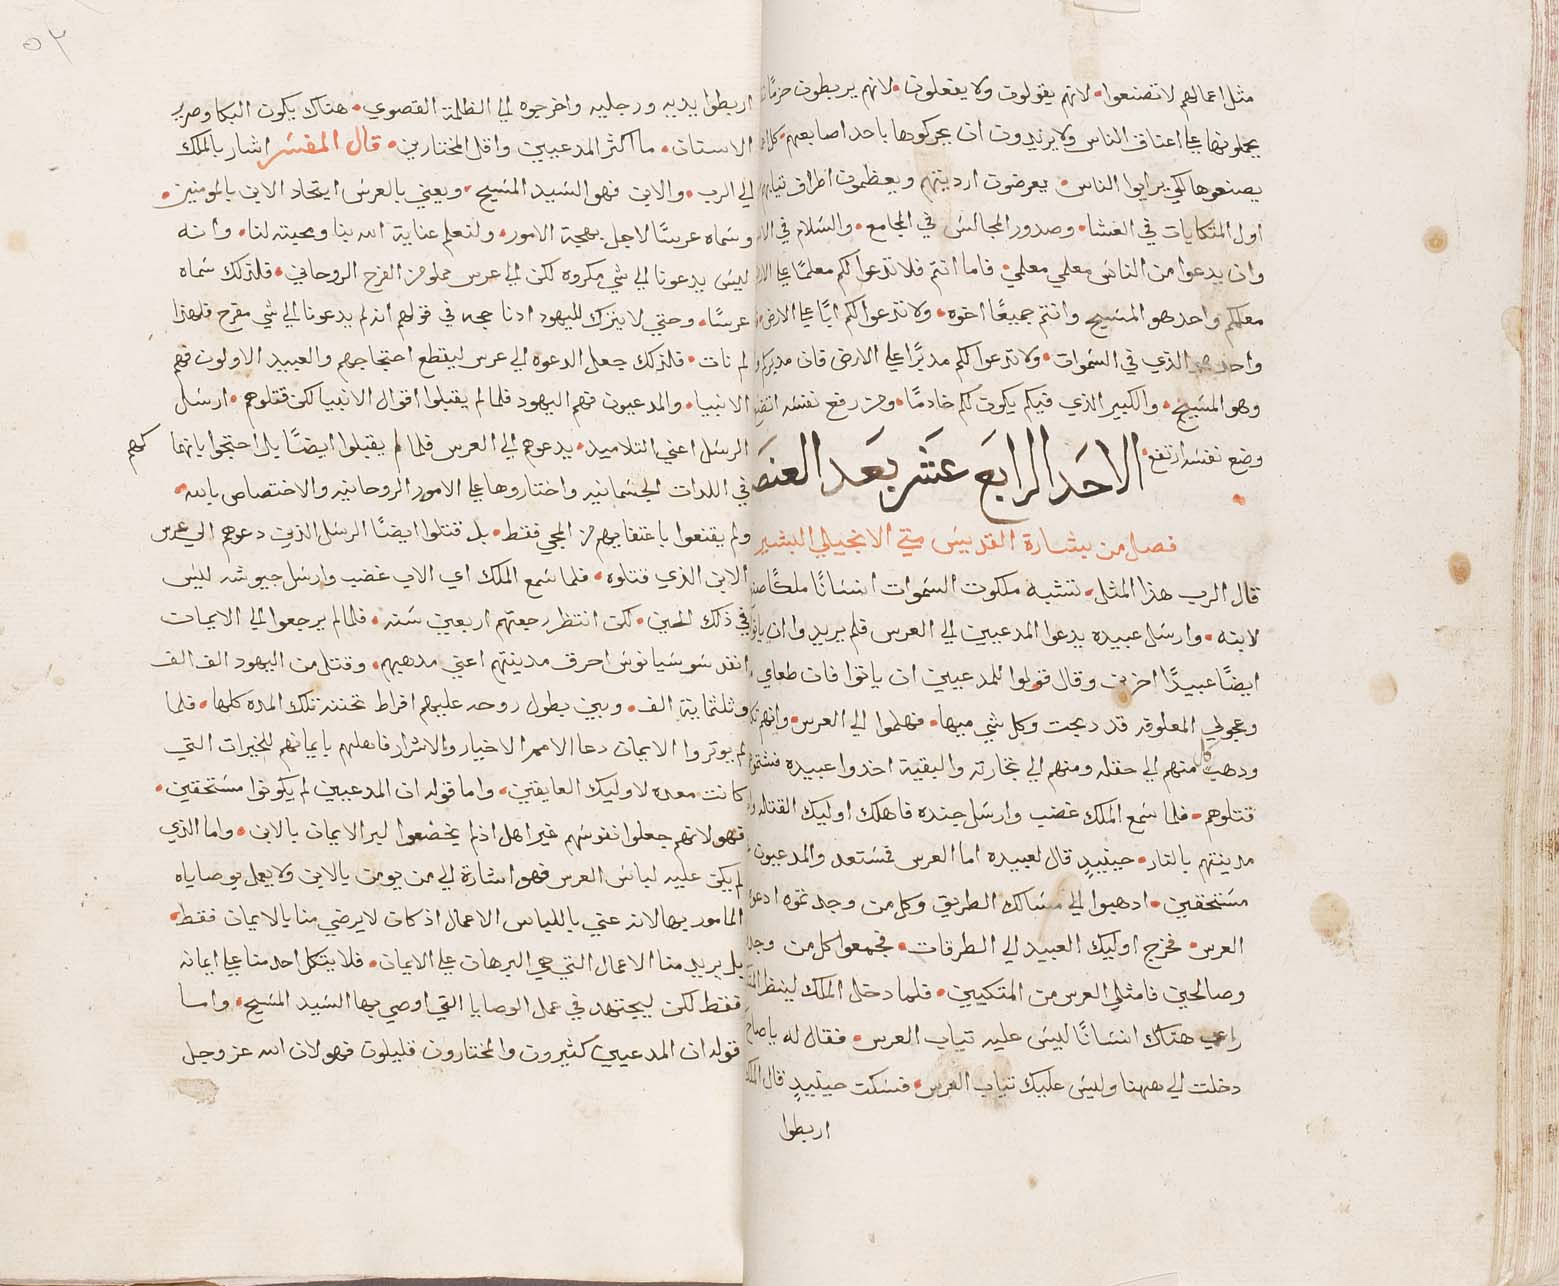 مثل اعمالهم لا تصنعوا. لانهم يقولون ولا يفعلون. لانهم يربطون حزمًا
يحملونها علي اعناق الناس ولا يريدون ان يحركوها باحد اصابعهم.
يصنعوها لكي يرايوا الناس. يعرضون ارديتهم ويعظمون اطراف تيابهم
اول المتكايات في العشا. وصدور المجالس في المجامع. والسلام في
وان يدعوا من الناس معلمي معلمي. فاما انتم فلا تدعوا لكم معلمًا علي
معلمكم واحد هو المسيح وانتم جميعًا اخوه. ولا تدعوا لكم ابًا علي الارض
واحد هو الذي في السموات. ولا تدعوا لكم مدبرًا علي الارض فان مدبركم
وهو المسيح. والكبير الذي فيكم يكون لكم خادمًا. ومن رفع نفسه اتضع
وضع نفسه ارتفع.
الاحد الرابع عشر بعد العنصره
فصل من بشارة القديس متي الانجيلي البشير
قال الرب هذا المثل. تتشبه ملكوت السموات انسانًا ملكًا صنع
لابنه. وارسل عبيده يدعوا المدعيين الي العرس فلم يريدوا ان ياتوا
ايضًا عبيدًا اخرين وقال قولوا للمدعيين ان ياتوا فان طعامي
وعجولي المعلوفه قد دبحت وكل شي مهيا. فهلموا الي العرس. وانهم
ودهب كل منهم الي حقله ومنهم الي تجارته والبقية اخدوا عبيده فشتموا
قتلوهم. فلما سمع الملك غضب وارسل جنده فاهلك اوليك القتله
مدينتهم بالنار. حينيدٍ قال لعبيده اما العرس فمستعد والمدعيون
مستحقين. ادهبوا الي مسالك الطريق وكل من وجدتموه ادعوا
العرس. فخرج اوليك العبيد الي الطرقات. فجمعوا كل من وجدوا
وصالحين فامتلي العرس من المتكيين. فلما دخل الملك لينظر
راي هناك انسانًا ليس عليه تياب العرس. فقال له يا صاح
دخلت الي ههنا وليس عليك تياب العرس. فسكت حينيدٍ قال الملك
اربطوا
٥٣
اربطوا يديه ورجليه واخرجوه الي الظلمة القصوي. هناك يكون البكا وصرير
الاسنان. ما اكثر المدعيين واقل المختارين. قال المفسر اشار بالملك
الي الرب. والابن فهو السيد المسيح. ويعني بالعرس ايتحاد الابن بالمومنين.
وسماه عرسًا لاجل بهجة الامور. ولنعلم عناية الله بنا ومحبته لنا. وانه
ليس يدعونا الي شي مكروه لكن الي عرس مملو من الفرح الروحاني. فلذلك سماه
عرسًا. وحتي لا يترك لليهود ادنا حجه في قولهم انه لم يدعونا الي شي مفرح فلهذا
لم نات. فلذلك جعل الدعوه الي عرس ليقطع احتجاجهم والعبيد الاولون فهم
الانبيا. والمدعيون فهم اليهود فلما لم يقبلوا اقوال الانبيا لكن قتلوهم. ارسل
الرسل اعني التلاميد. يدعوهم الي العرس فلما لم يقبلوا ايضًا بل احتجوا بانهما كهم
في اللدات الجسمانيه واختاروها علي الامور الروحانيه والاختصاص بالله.
ولم يقنعوا باعتفايهم من المجي فقط. بل قتلوا ايضًا الرسل الذين دعوهم الي عرس
الابن الذي قتلوه. فلما سمع الملك اي الاب غضب وارسل جيوشه ليس
في ذلك الحين. لكن انتظر رجعتهم اربعين سنه. فلما لم يرجعوا الي الايمان
انفد سوسيانوس احرق مدينتهم اعني مدهبهم. وقتل من اليهود الف الف
وثلثماية الف. وبين بطول روحه عليهم افراط تحننه تلك المده كلها. فلما
لم يوتروا الايمان دعا الامم الاخيار والاشرار فاهلهم بايمانهم للخيرات التي
كانت معده لاوليك العايقين. واما قوله ان المدعيين لم يكونوا مستحقين.
فهو لانهم جعلوا نفوسهم غير اهل اذ لم يخضعوا لير الايمان بالابن. واما الذي
لم يكن عليه لباس العرس فهو اشارة الي من يومن بالابن ولا يعمل بوصاياه
المامور بها لانه عني باللباس الاعمال اذ كان لا يرضي منا بالايمان فقط.
بل يريد منا الاعمال التي هي البرهان علي الايمان. فلا يتكل احد منا علي ايمانه
فقط لكن ليجتهد في عمل الوصايا التي اوصي بها السيد المسيح. واما
قوله ان المدعيين كثيرون والمختارون قليلون فهو لان الله عز وجل